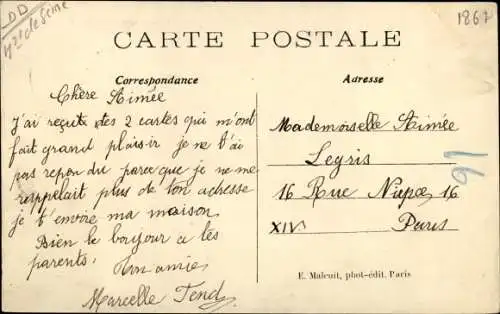 LDD
1867
CARTE POSTALE
Correspondance
Adresse
Chère Aimée
J'ai reçute des 2 cartes qui m'ont
fait grand plaisir je ne t'ai
pas repondu parce que je ne me
rappelait plus de ton adresse
je t'envoie ma maison
Bien le bonjour a tes
parents.
Ton amie
Marcelle
Mademoiselle Aimée
Legris
16 Rue Niepce 16
XIV
Paris
91
E. Malcuit, phot-édit. Paris